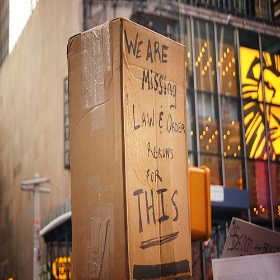 WE ARE
Missing
LAW & ORDER
RERUNS
FOR
THIS